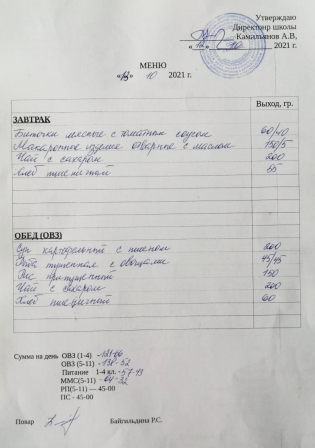 Утверждаю
Директор школы
Камальянов А.В,
2021 г.
МЕНЮ
«13» 10 2021 г.
Выход, гр.
ЗАВТРАК
Биточки мясные с томатным соусом 60/40
Макаронные изделия отварные с маслом 150/5
Чай с сахаром 200
Хлеб пшеничный 55
ОБЕД (ОВЗ)
Суп картофельный с пшеном 200
тушенная с овощами 45/45
Рис припущенный 150
Чай с сахаром 200
Хлеб пшеничный 60
Сумма на день ОВЗ (1-4)
ОВЗ (5-11)
Питание 1-4 кл. -57-43
ММС(5-11) -64-32
РП(5-11) — 45-00
ПС - 45-00
Повар Байгильдина Р.С.